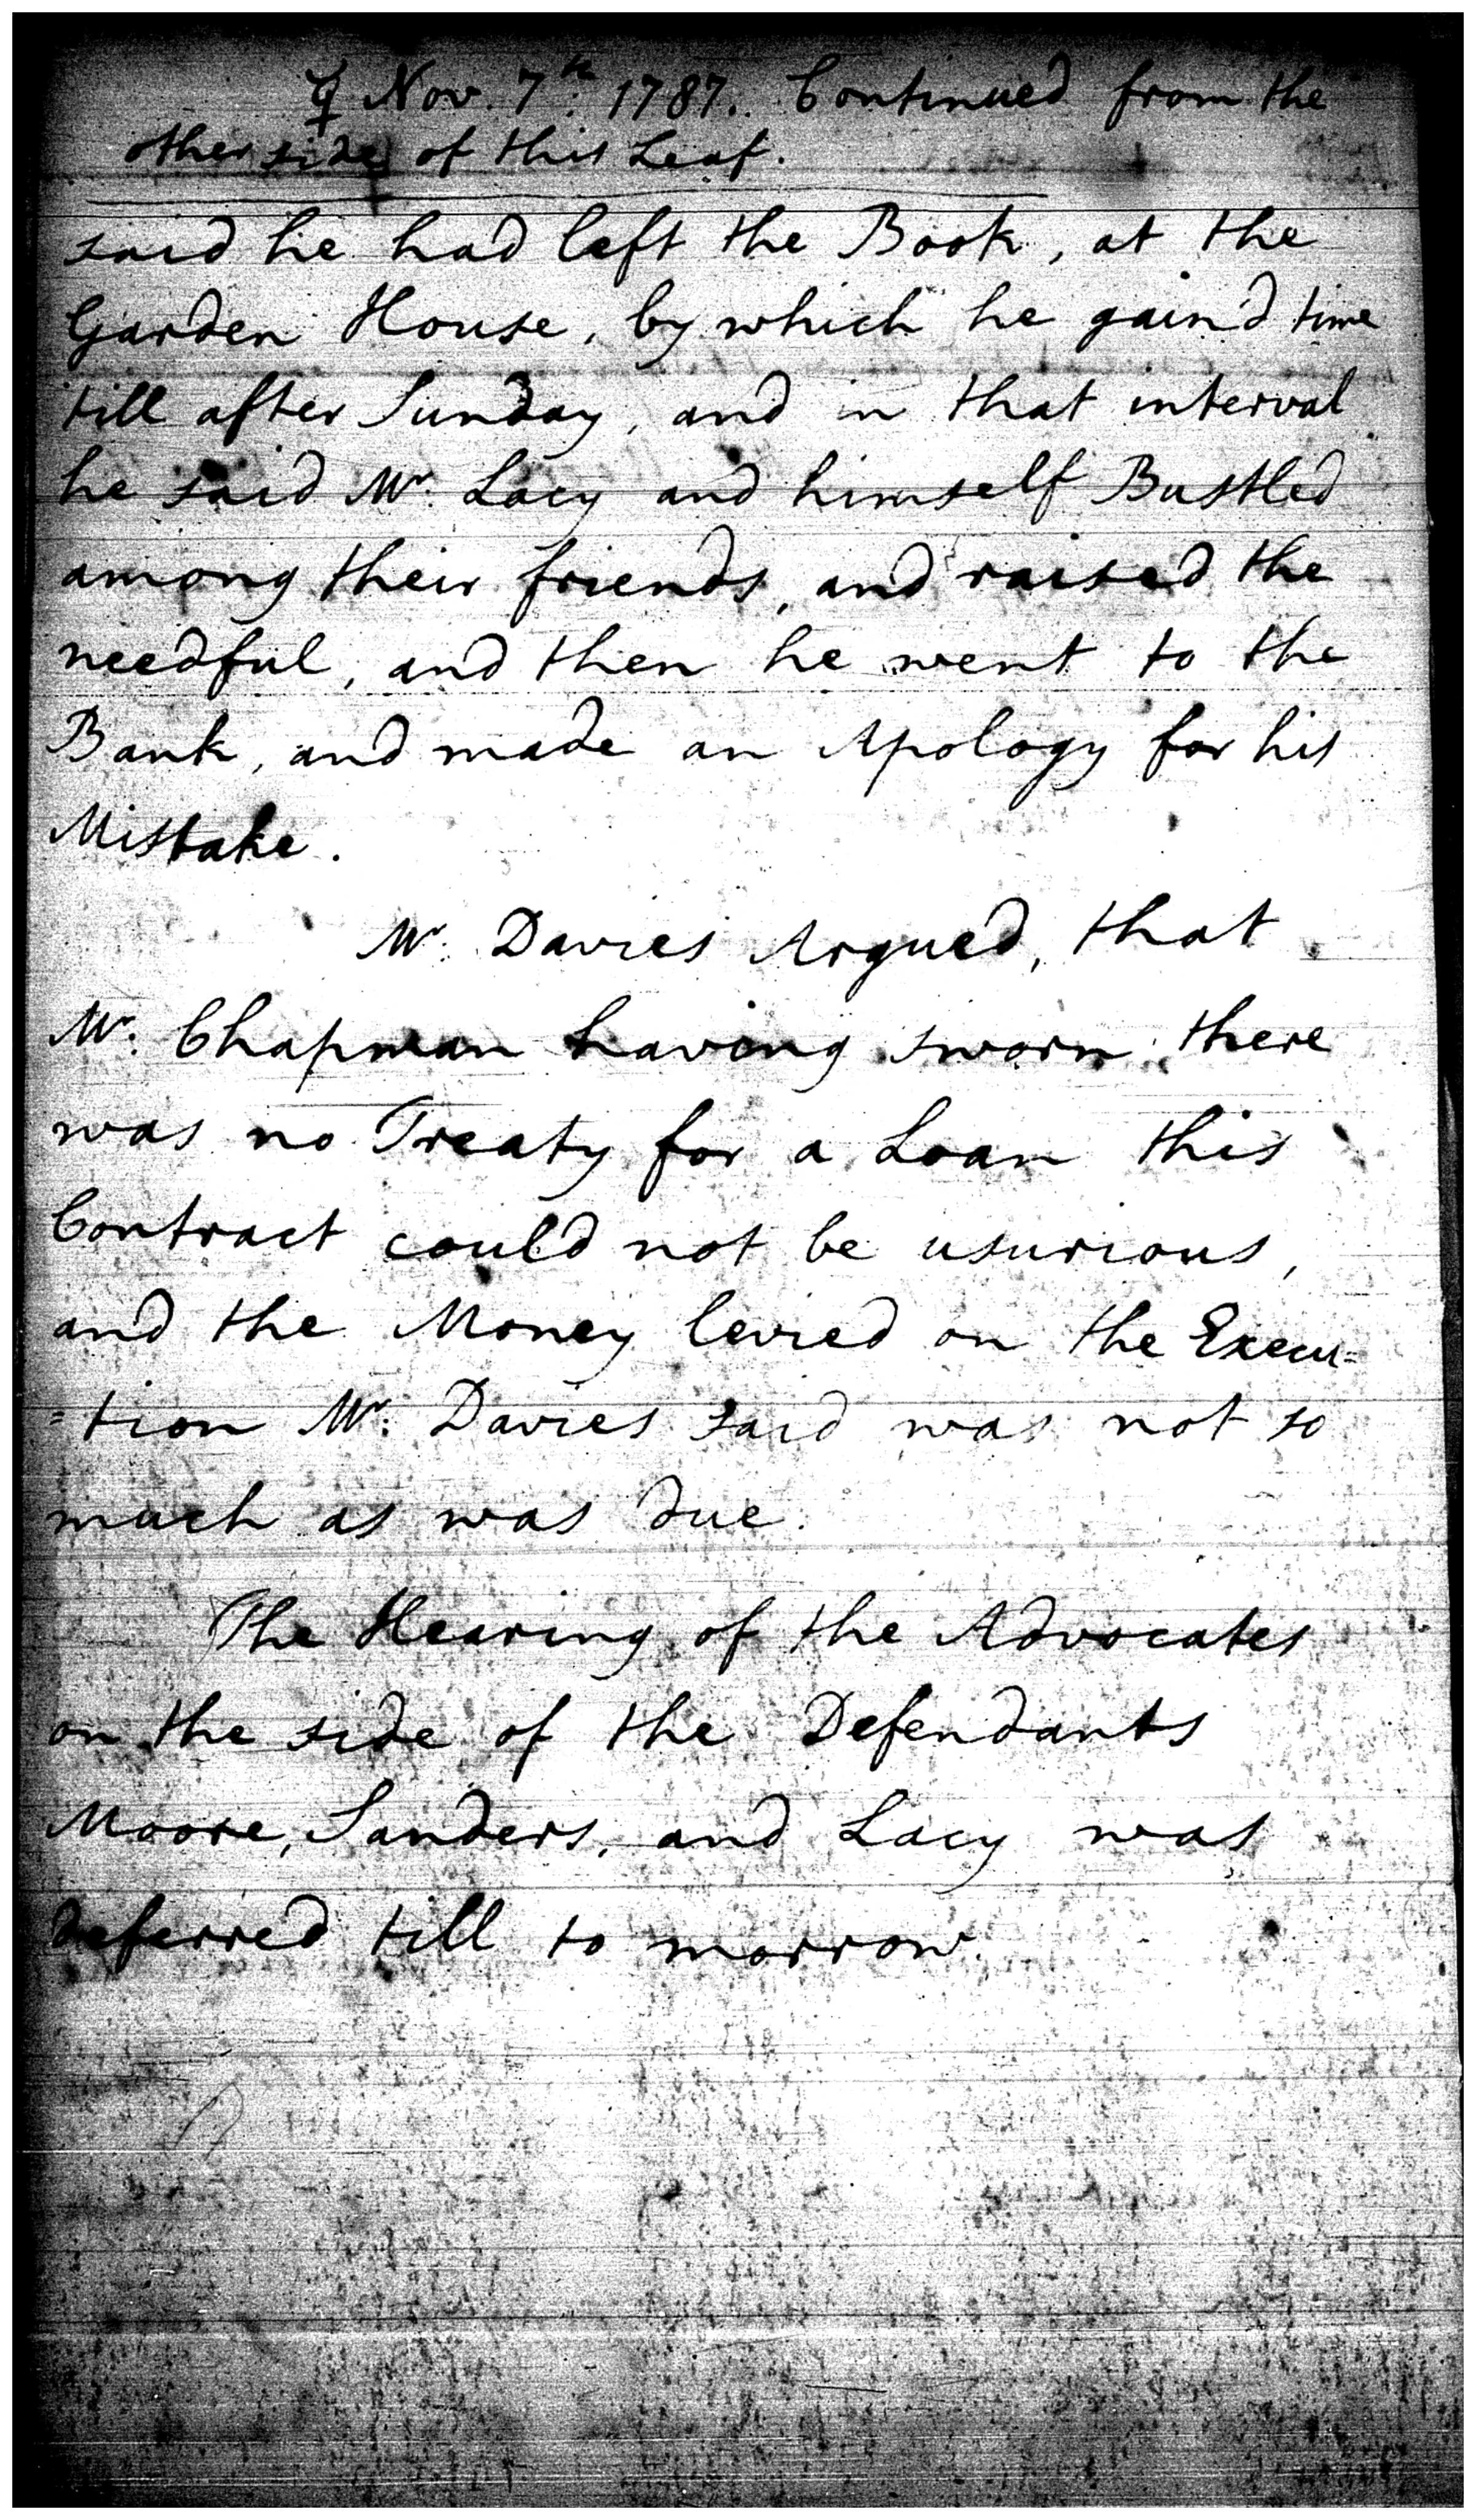 ☿ Nov. 7th. 1787. Continued from the
other side of this Leaf.
said he had left the Book, at the
Garden House, by which he gain'd time
till after Sunday, and in that interval
he said Mr. Lacy and himself Bustled
among their friends, and raised the
needful, and then he went to the
Bank, and made an Apology for his
Mistake.
Mr. Davies Argued, that
Mr. Chapman having sworn there
was no Treaty for a Loan this
Contract could not be usurious,
and the Money levied on the Execu=
=tion Mr. Davies said was not so
much as was due.
The Hearing of the Advocates
on the side of the Defendants
Moore, Sanders, and Lacy was
deferred till to morrow.